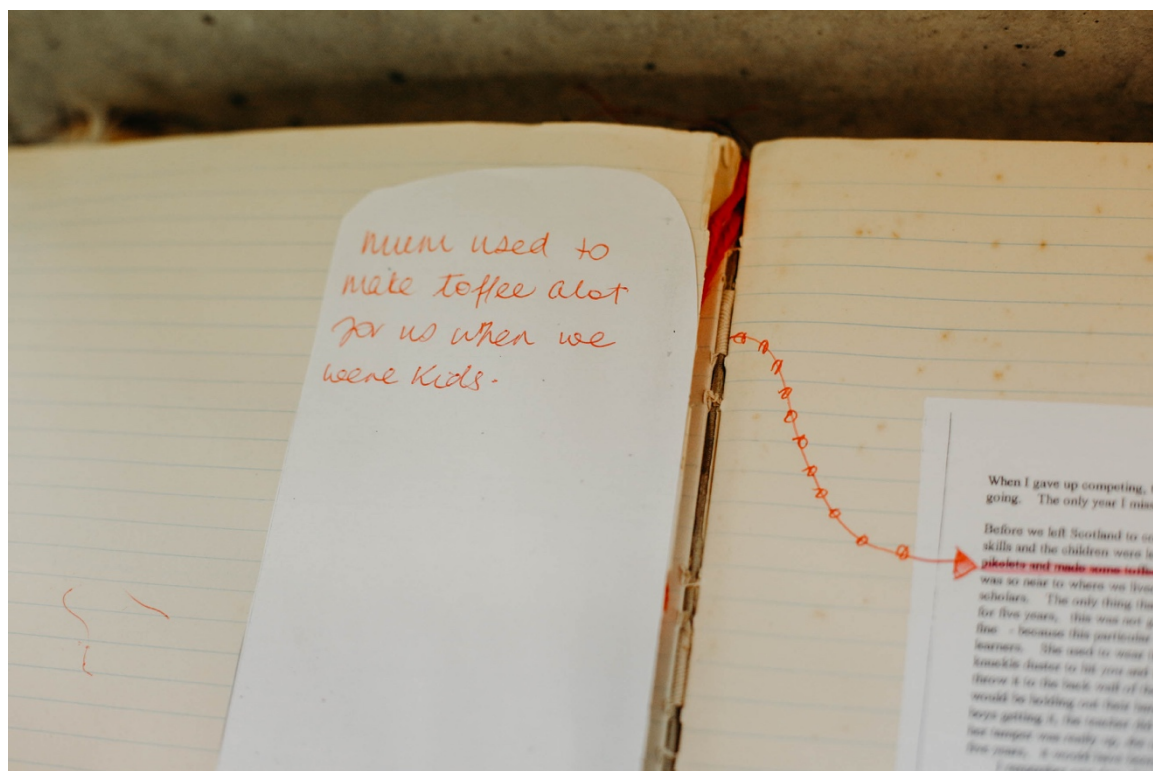 mum used to
make toffee alot
for us when we
were kids.
When I gave up competing,
going. The only year I miss
Before we left Scotland to
skills and the children were
pikelets and made some toffe
was so near to where we live
scholars. The only thing tha
for five years, this was not
fine - because this particular
learners. She used to wear
knuckle duster to hit you and
throw it to the back wall of the
would be holding out their
boys getting it, the teacher
her temper was really up, she
five years, it would have
I remember